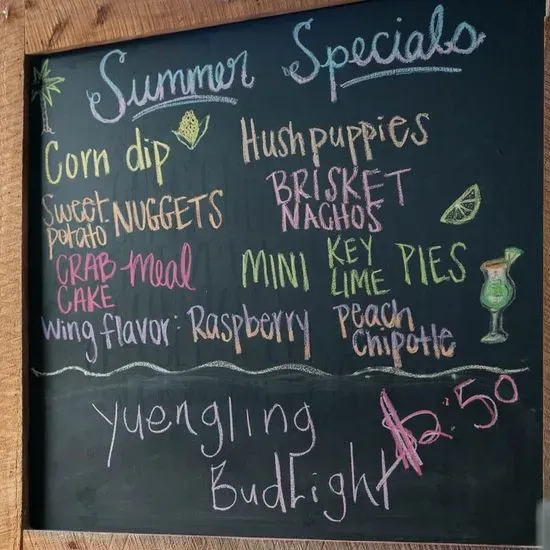 Summer Specials
Corn dip
Hushpuppies
Sweet potato NUGGETS
BRISKET
NACHOS
CRAB CAKE meal
MINI KEY LIME PIES
Wing flavor: Raspberry Peach Chipotle
Yuengling
BudLight
$2.50